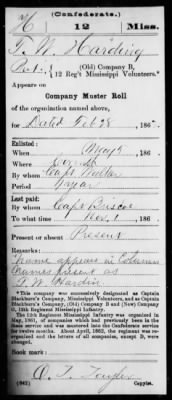 H (Confederate.) 12 Miss.
T. W. Harding
Pvt. { (Old) Company B,
12 Reg't Mississippi Volunteers.*
Appears on
Company Muster Roll
of the organization named above,
for Dated Feb 28, 186
Enlisted:
When May 2, 186
Where
By whom Capt
Period 1 year
Last paid:
By whom Capt Briscoe
To what time Nov. 1, 186
Present or absent Present
Remarks:
Name appears in Column
names present as
T. W. Hardin
*This company was successively designated as Captain
Blackburn's Company, Mississippi Volunteers, and as Captain
Blackburn's Company, (Old) Company B and (New) Company
G, 12th Regiment Mississippi Infantry.
The 12th Regiment Mississippi Infantry was organized in
May, 1861, of companies which had previously been in the
State service and was mustered into the Confederate service
for twelve months. About April, 1862, the regiment was re-
organized and the letters of all companies, except D, were
changed.
Book mark:
(642) Copyist.